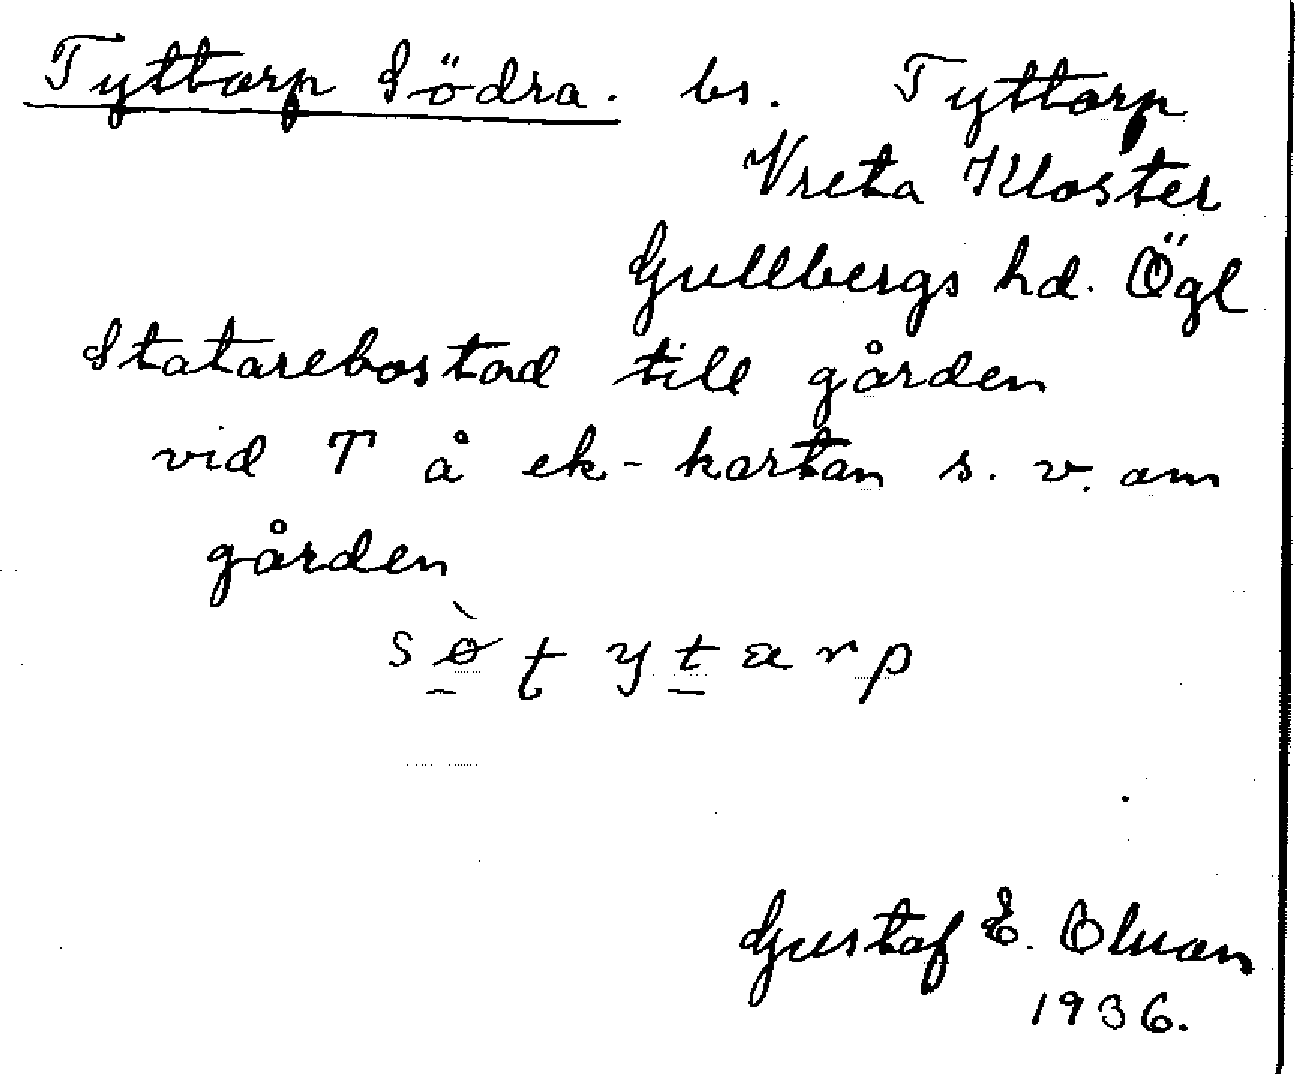 Tyttorp Södra. bs. Tyttorp
Vreta Kloster
Gullbergs hd. Ögl
Statarebostad till gården
vid T å ek-kartan s. v. om
gården
sø̀tytarp
Gustaf E. Olsson
1936.